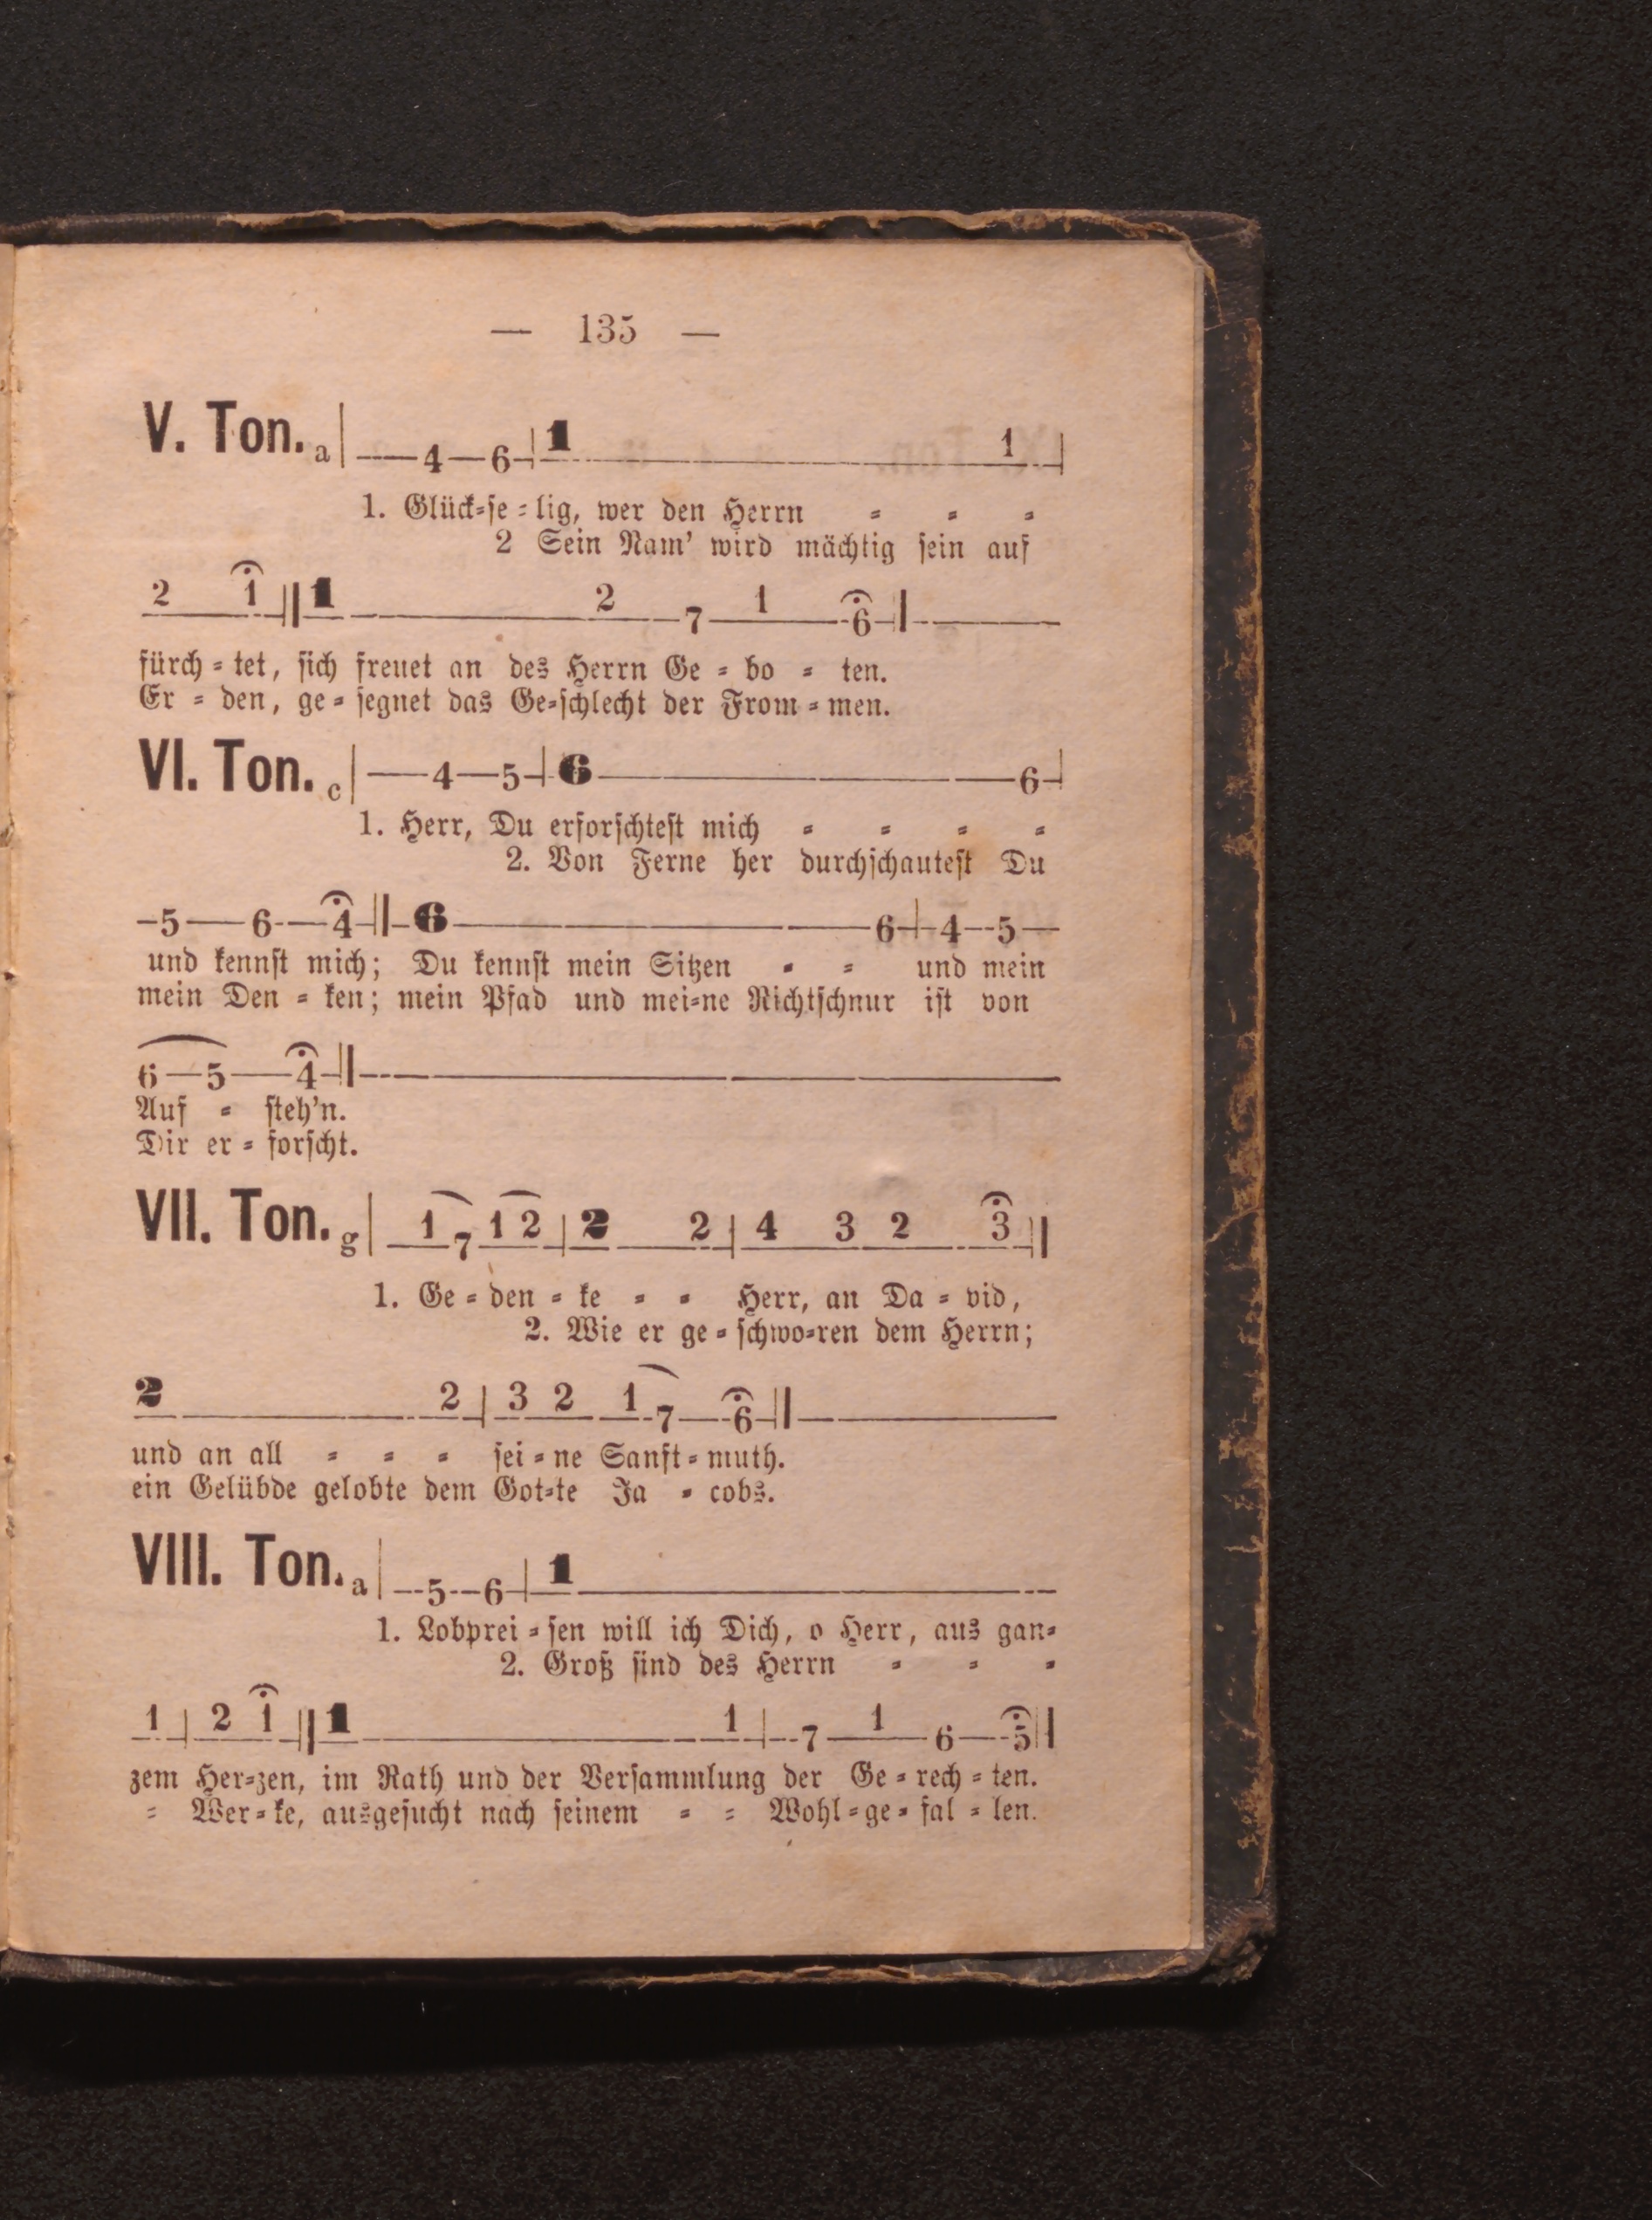 — 135 —
V. Ton. a 4 6 1 1
1. Glück-se-lig, wer den Herrn - - -
2 Sein Nam' wird mächtig sein auf
2 1 1 2 7 1 6
fürch-tet, sich freuet an des Herrn Ge-bo-ten.
Er-den, ge-segnet das Ge-schlecht der From-men.
VI. Ton. c 4 5 6 6
1. Herr, Du erforschtest mich - - - -
2. Von Ferne her durchschautest Du
5 6 4 6 6 4 5
und kennst mich; Du kennst mein Sitzen - - und mein
mein Den-ken; mein Pfad und mei-ne Richtschnur ist von
6 5 4
Auf - steh'n.
Dir er-forscht.
VII. Ton. g 1 7 1 2 2 2 4 3 2 3
1. Ge-den-ke - - Herr, an Da-vid,
2. Wie er ge-schwo-ren dem Herrn;
2 2 3 2 1 7 6
und an all - - - sei-ne Sanft-muth.
ein Gelübde gelobte dem Got-te Ja-cobs.
VIII. Ton. a 5 6 1
1. Lobprei-sen will ich Dich, o Herr, aus gan-
2. Groß sind des Herrn - - -
1 2 1 1 1 7 1 6 5
zem Her-zen, im Rath und der Versammlung der Ge-rech-ten.
- Wer-ke, ausgesucht nach seinem - - Wohl-ge-fal-len.